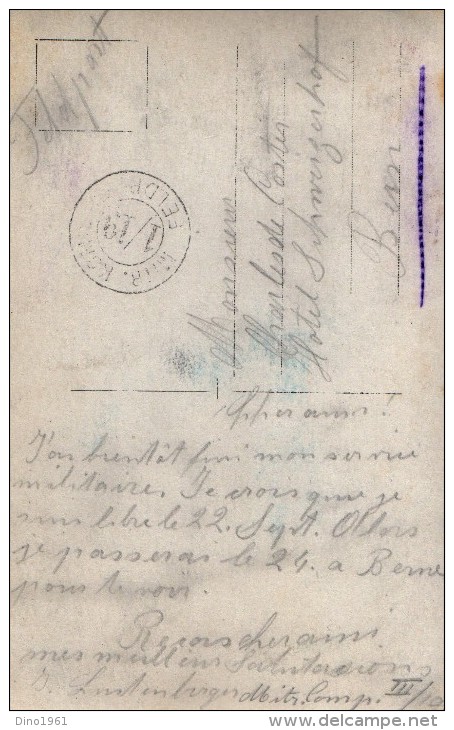 Feldpost
MITR. KOMP. III/19 FELDP
Monsieur
Charles de Coster
Hotel Schweizerhof
Bern
Cher ami!
J'ai bientôt fini mon service
militaire. Je crois que je
suis libre le 22. Sept. Alors
je passerai le 24. a Berne
pour te voir.
Reçois cher ami
mes meilleur Salutations
J. Lustenberger Mitr. Comp. III/19
Dino1961
www.delcampe.net